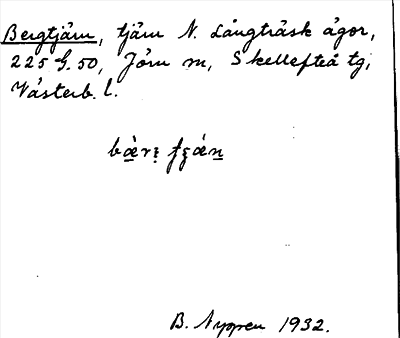 Bergtjärn, tjärn N. Långträsk ägor,
225 G. 50, Jörn sn, Skellefteå tg,
Västerb. l.
B. Nygren 1932.